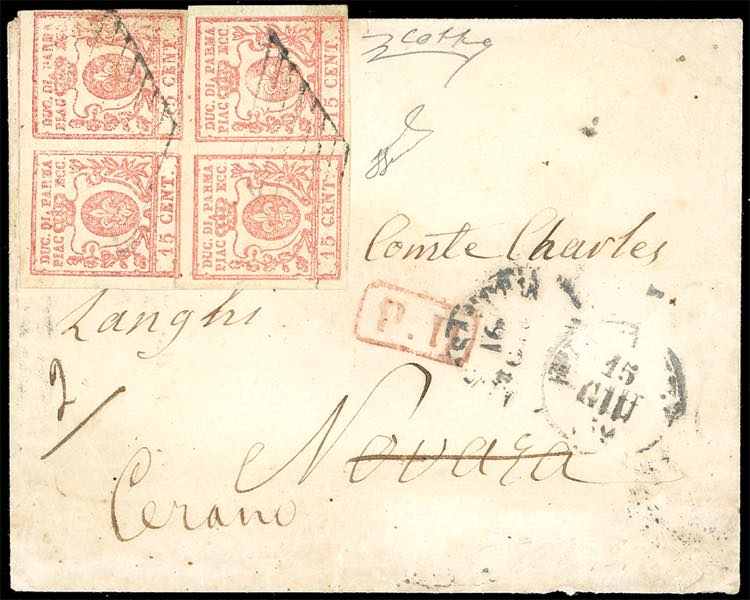 DUC. DI PARMA
PIAC ECC.
15 CENT.
DUC. DI PARMA
PIAC ECC.
15 CENT.
DUC. DI PARMA
PIAC ECC.
15 CENT.
DUC. DI PARMA
PIAC ECC.
15 CENT.
Comte Charles
Langhi
P.D
16
15
GIU
2/
Novara
Cerano